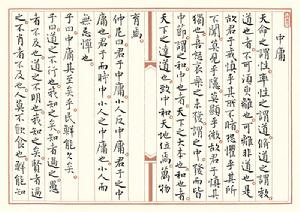 中庸
天命之謂性率性之謂道修道之謂教
道也者不可須臾離也可離非道也是
故君子戒慎乎其所不睹恐懼乎其所
不聞莫見乎隱莫顯乎微故君子慎其
獨也喜怒哀樂之未發謂之中發而皆
中節謂之和中也者天下之大本也和也者
天下之達道也致中和天地位焉萬物
育焉
仲尼曰君子中庸小人反中庸君子之中
庸也君子而時中小人之中庸也小人而
無忌憚也
子曰中庸其至矣乎民鮮能久矣
子曰道之不行也我知之矣知者過之愚
者不及也道之不明也我知之矣賢者過
之不肖者不及也人莫不飲食也鮮能知